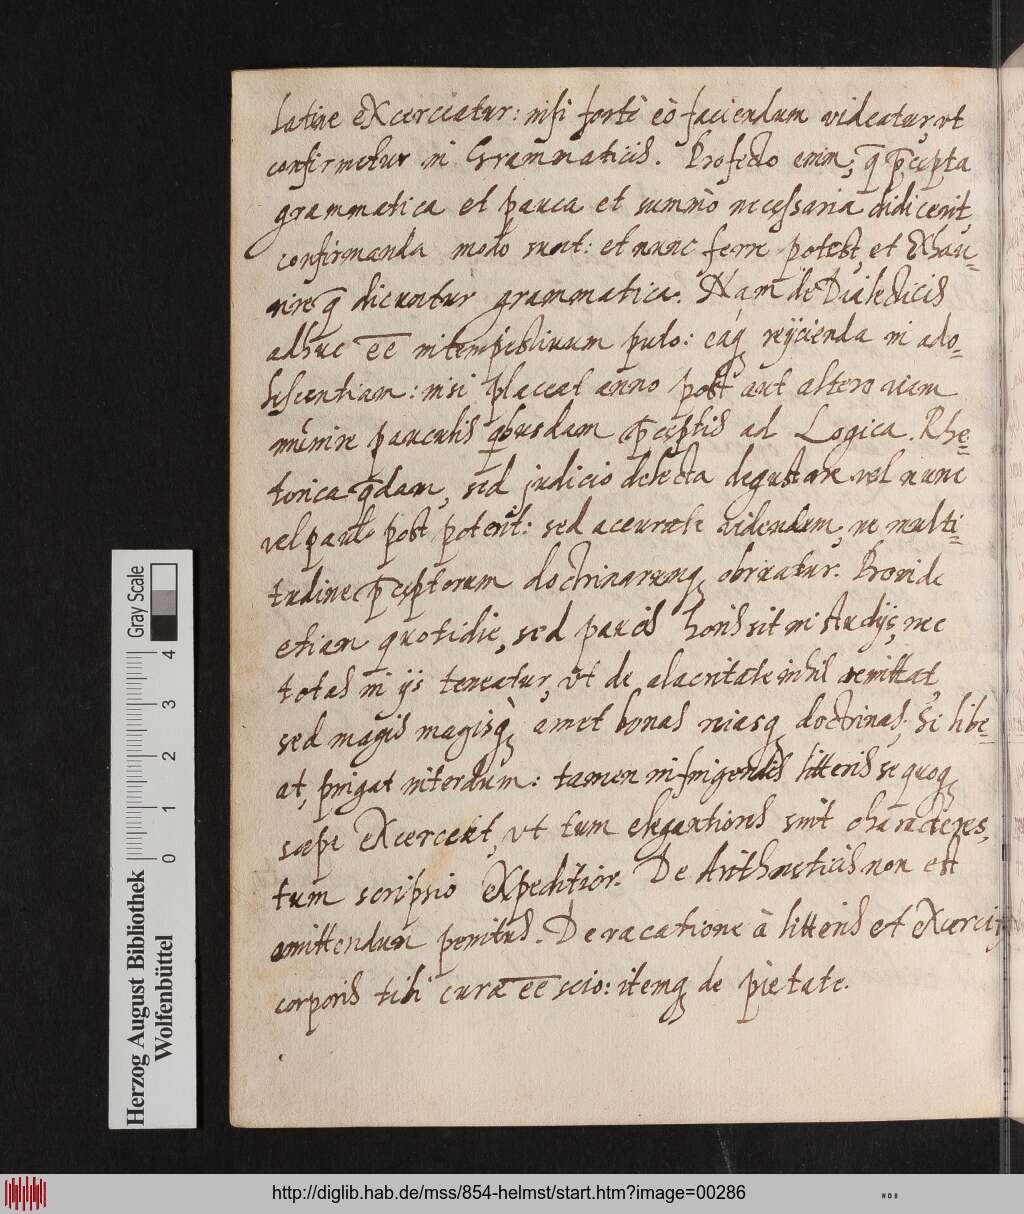 latine exerceatur: nisi fortè eò faciendum videatur, ut
confirmetur in Grammaticis. Profecto enim, q̄ p̄cepta
grammatica et pauca et summò necessaria didicerit,
confirmanda modò sunt: et nunc ferre potest, et exhau-
rire q̄ dicuntur grammatica. Nam de Dialecticis
adhuc eē intempestivum puto: eaq; reijcienda in ado-
lescentiam: nisi placeat anno post aut altero viam
munire pauculis q̄busdam p̄ceptis ad Logica. Rhe=
torica q̄dam, sed judicio delecta degustare vel nunc
vel paulò post poterit: sed accuratè videndum, ne multi=
tudine p̄ceptorum doctrinarumq; obruatur. Proinde
etiam quotidie, sed paucis horis sit in studijs, nec
totas in ijs teneatur, ut de alacritate nihil remittat,
sed magis magisq; amet bonas nias q; doctrinas. Si libe=
at, pingat interdum: tamen in fingendis litteris se quoq;
sæpe exerceat, ut tum elegantioris sint characteres,
tum scriptio expeditior. De Arithmeticis non est
omittendum penitus. De vacatione à litteris et exercitijs
corporis tibi curæ eē scio: itemq; de pietate.
Herzog August Bibliothek
Wolfenbüttel
Gray Scale
0 1 2 3 4
http://diglib.hab.de/mss/854-helmst/start.htm?image=00286
WDB